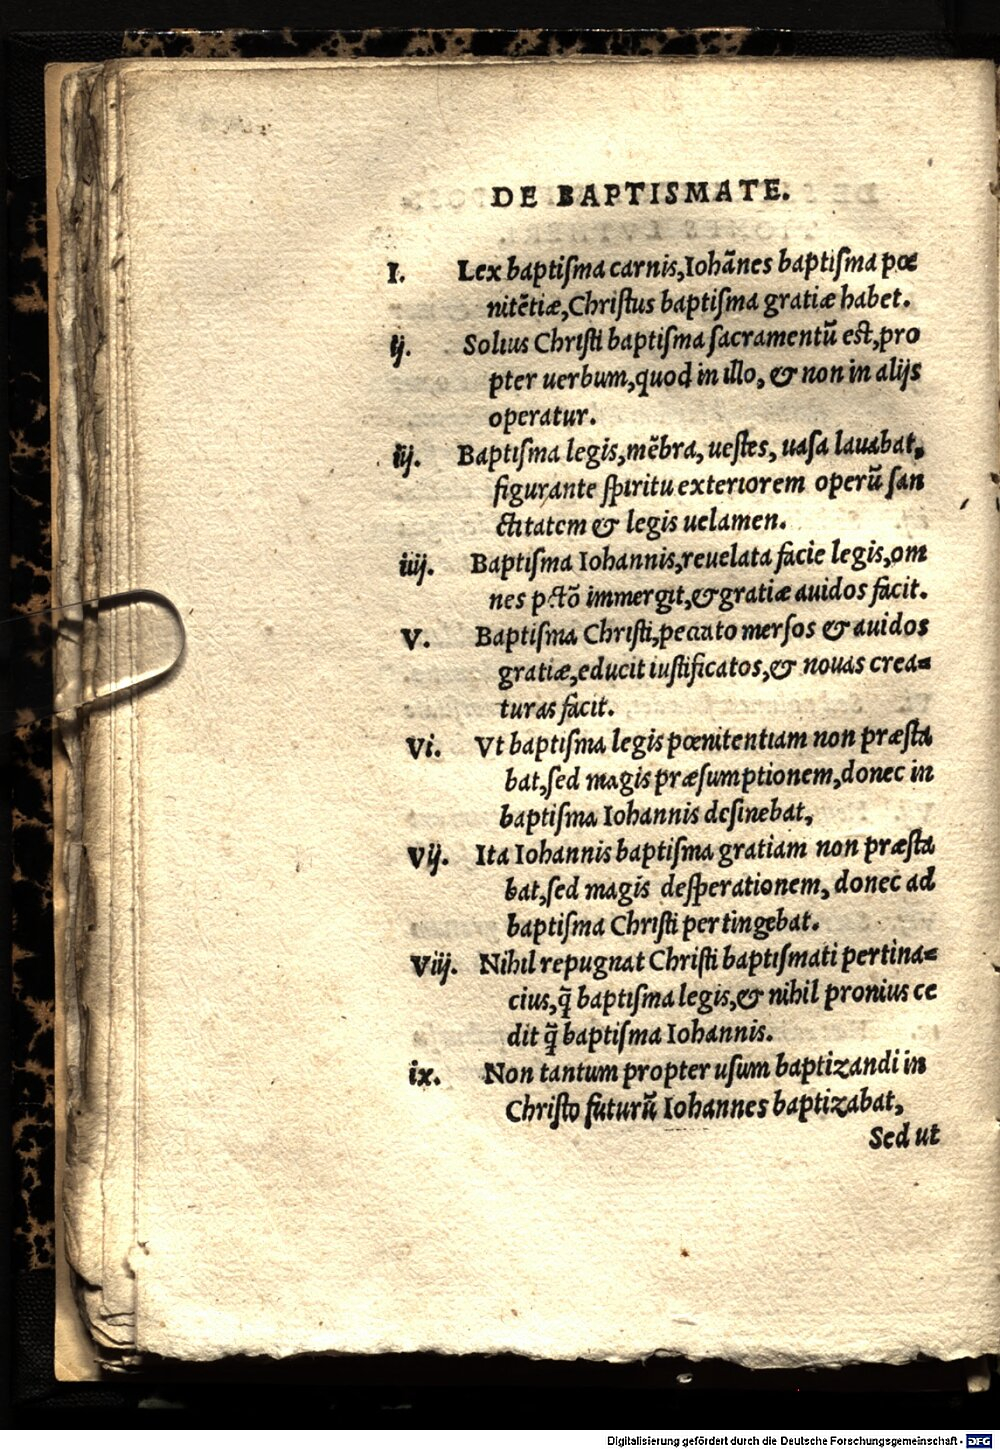 DE BAPTISMATE.
I. Lex baptiſma carnis,Iohãnes baptiſma pœ
nitẽtiæ,Chriſtus baptiſma gratiæ habet.
ij. Solius Chriſti baptiſma ſacramentũ eſt,pro
pter uerbum,quod in illo, & non in alijs
operatur.
iij. Baptiſma legis,mẽbra, ueſtes, uaſa lauabat,
figurante ſpiritu exteriorem operũ ſan
ctitatem & legis uelamen.
iiij. Baptiſma Iohannis,reuelata facie legis,om
nes pctõ immergit,& gratiæ auidos facit.
V. Baptiſma Chriſti,peccato merſos & auidos
gratiæ,educit iuſtificatos,& nouas crea=
turas facit.
Vi. Vt baptiſma legis pœnitentiam non præſta
bat,ſed magis præſumptionem,donec in
baptiſma Iohannis deſinebat,
Vij. Ita Iohannis baptiſma gratiam non præſta
bat,ſed magis deſperationem, donec ad
baptiſma Chriſti pertingebat.
Viij. Nihil repugnat Chriſti baptiſmati pertina=
cius,q̃ baptiſma legis,& nihil pronius ce
dit q̃ baptiſma Iohannis.
ix. Non tantum propter uſum baptizandi in
Chriſto futurũ Iohannes baptizabat,
Sed ut
Digitalisierung gefördert durch die Deutsche Forschungsgemeinschaft - DFG